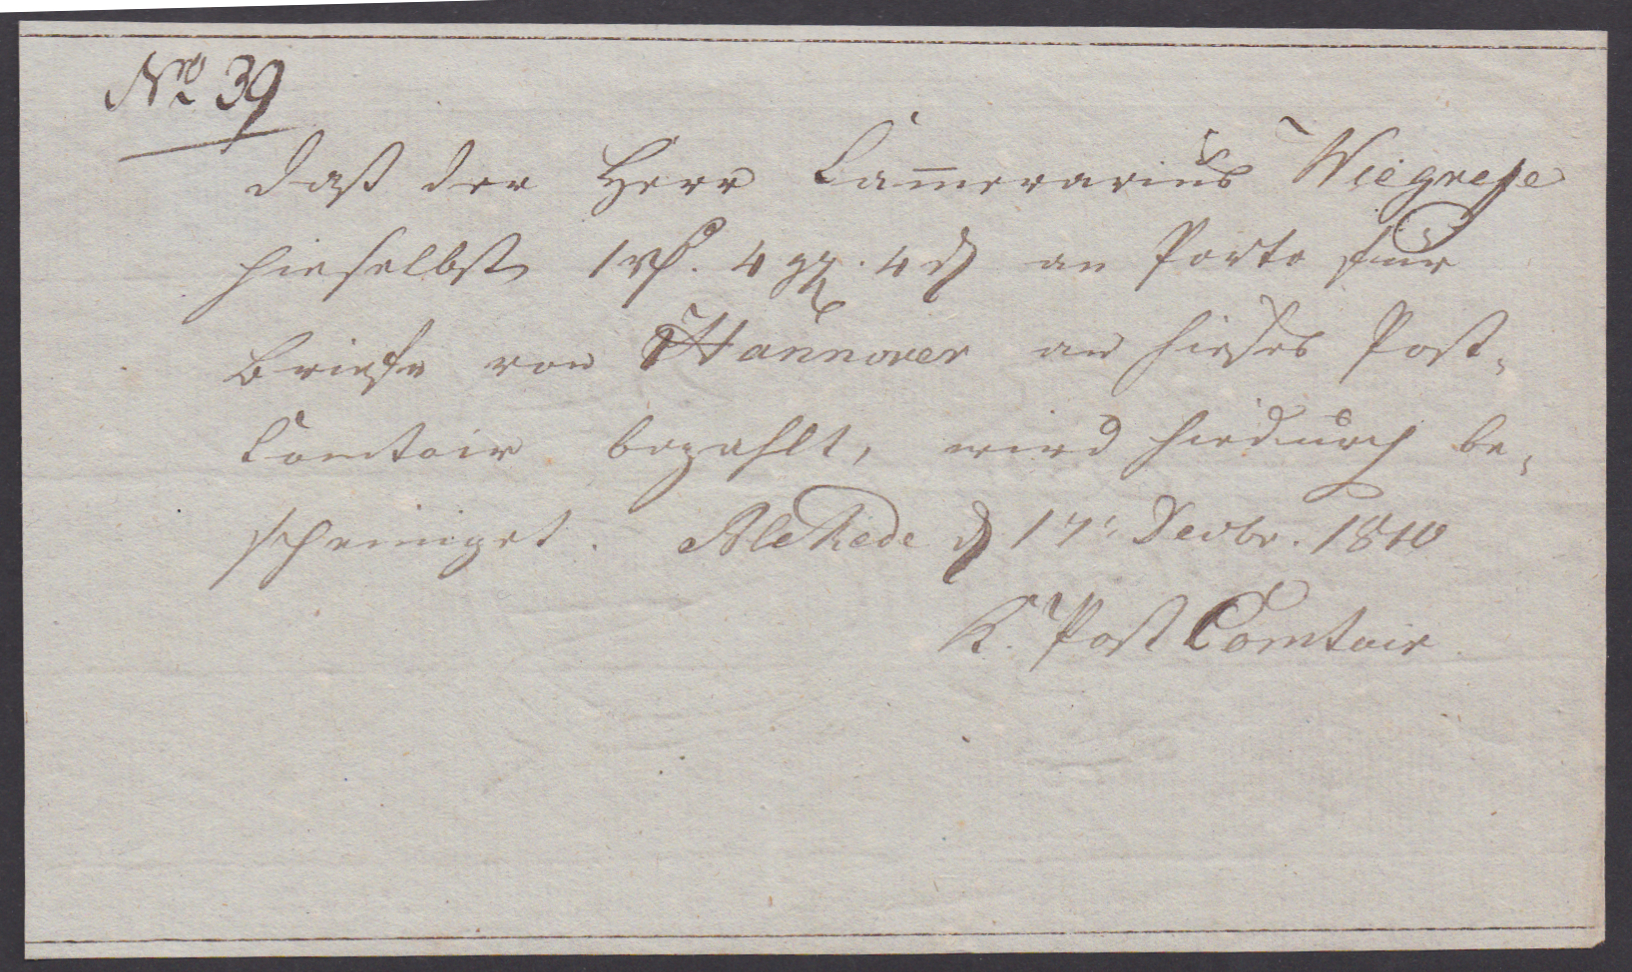 No 39
Daß der Herr Camerarius Wiegrefe
hieselbst, 1 rth. 4 ggr. 4 d an Porto für
Briefe von Hannover an hieses Post-
Comtoir bezahlt, wird hiedurch be-
scheiniget. Blekede d 17t Decbr. 1810
K. Post Comtoir